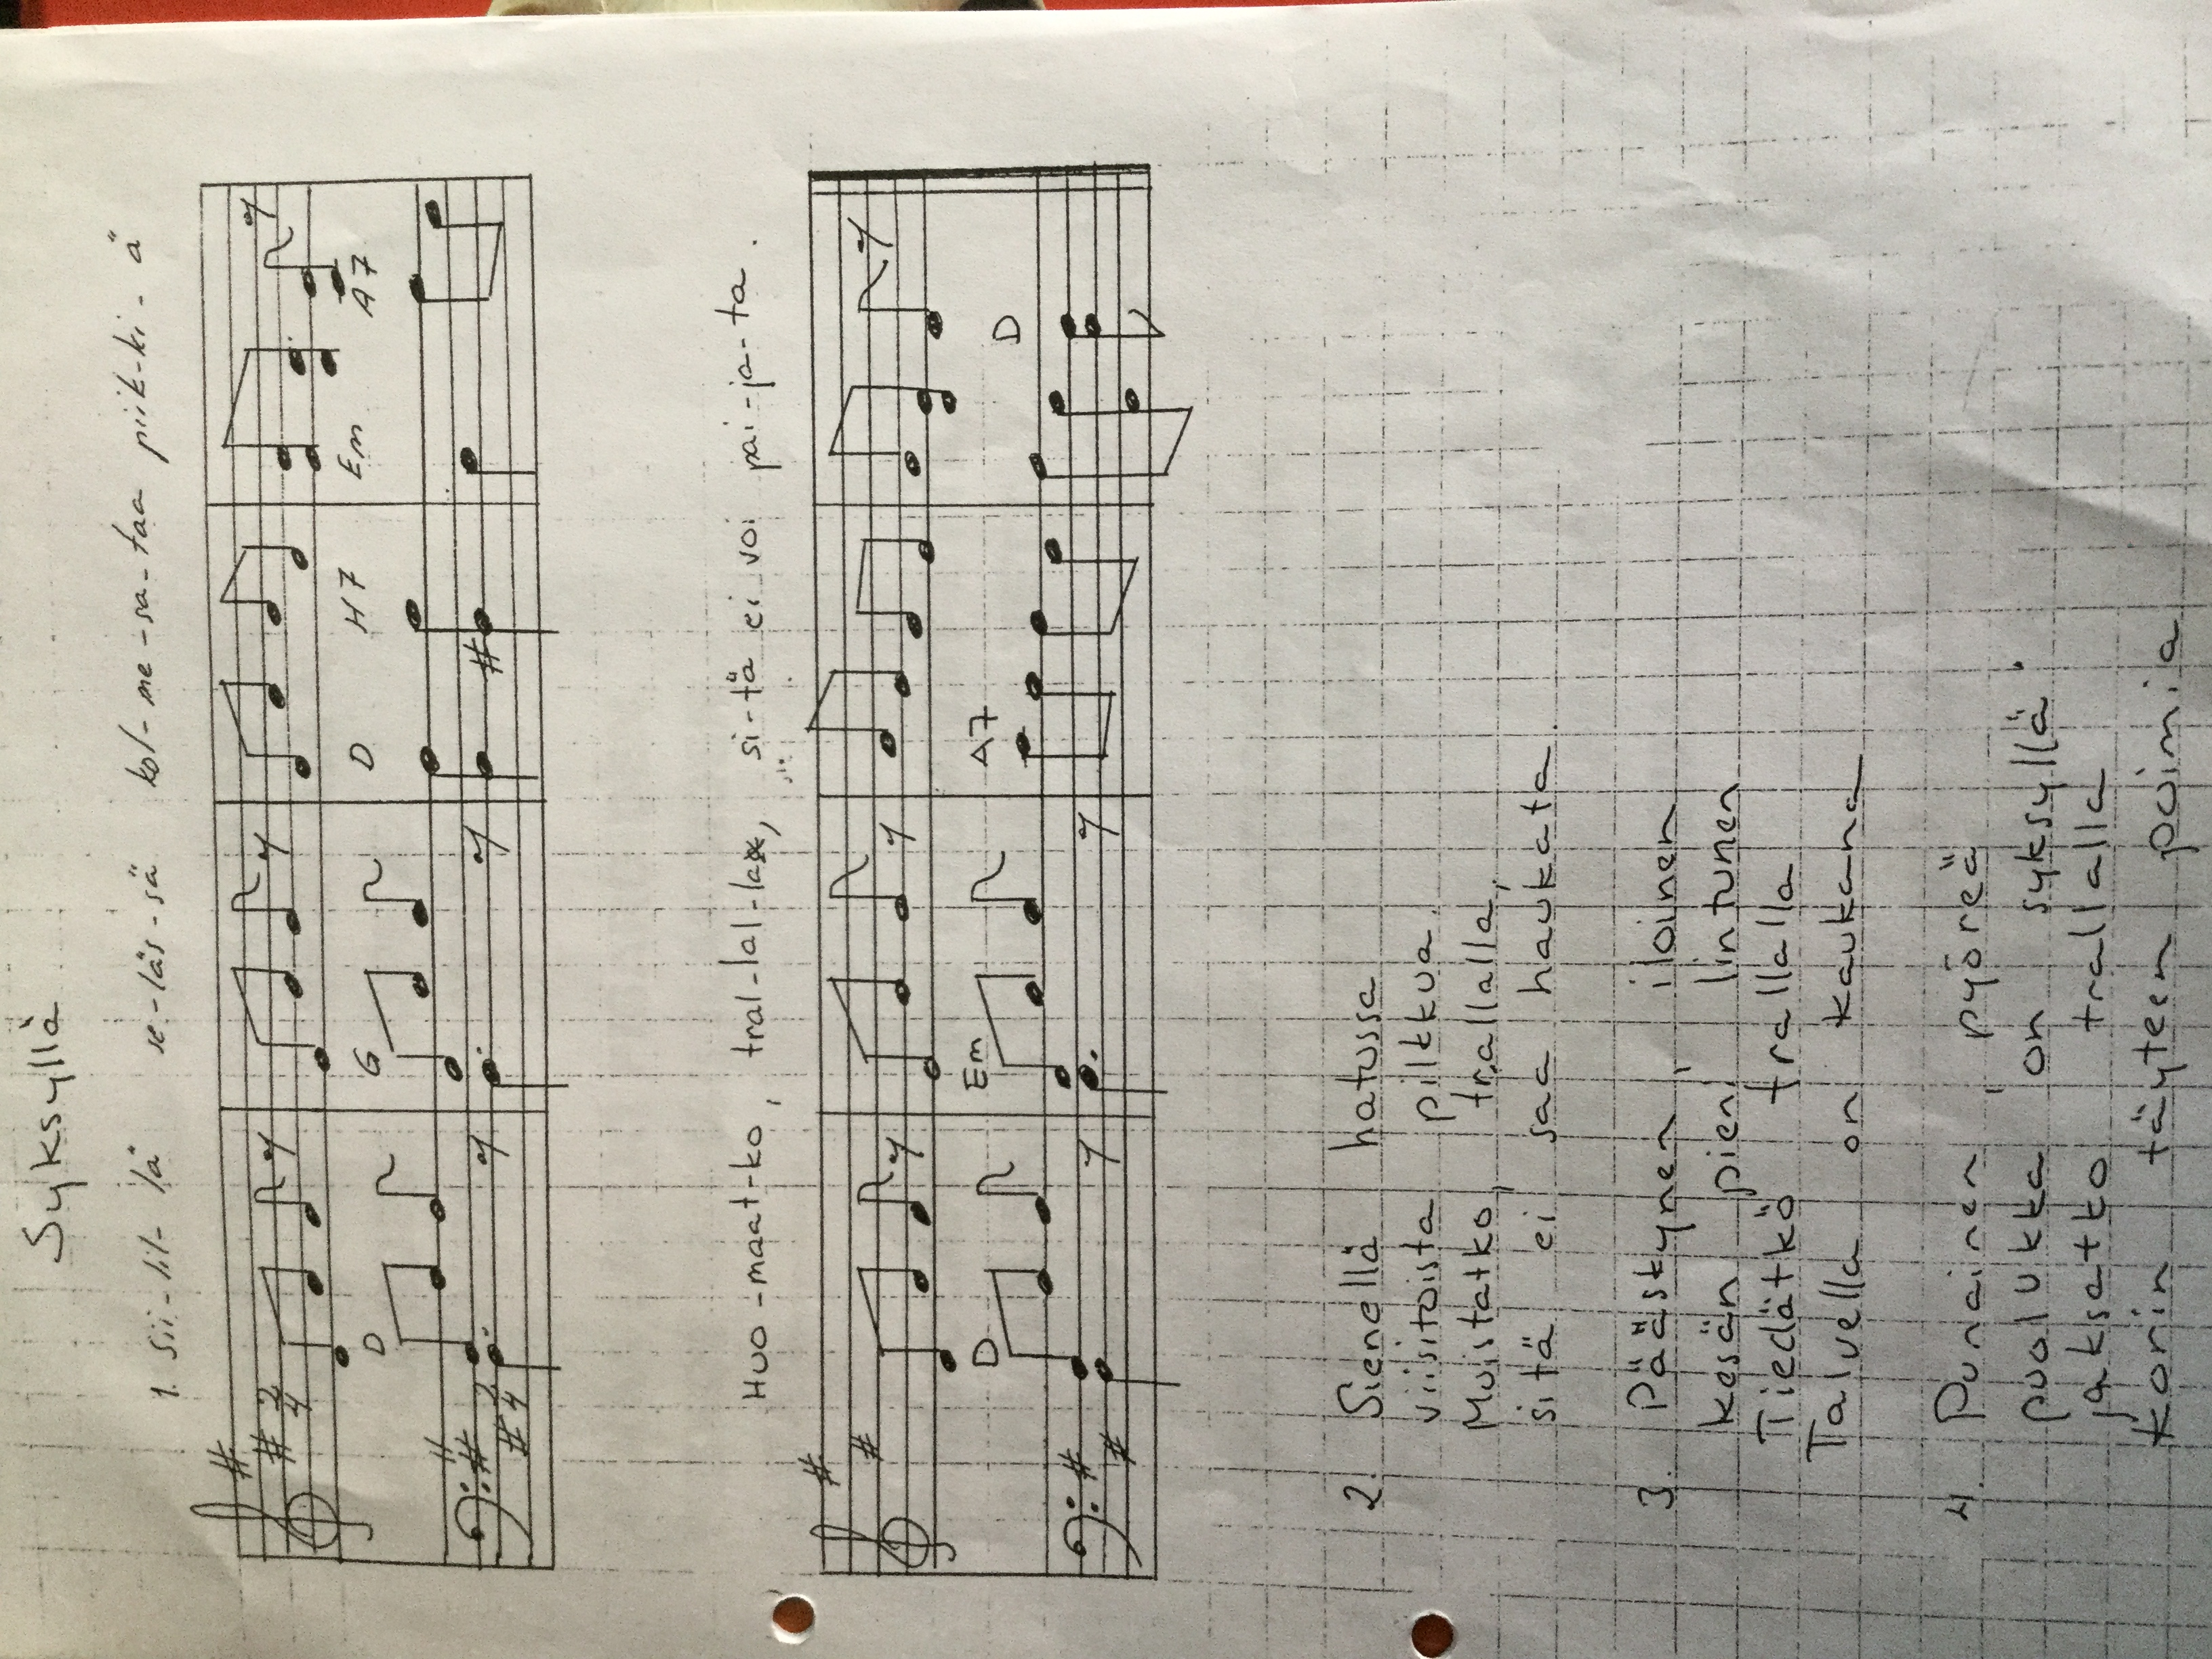 Syksyllä
1. Sii-lil-lä se-läs-sä kol-me-sa-taa piik-ki-ä
2/4
D G D H7 Em A7
2/4
Huo-maat-ko, tral-lal-laa, si-tä ei voi pai-ja-ta.
D Em A7 D
2. Sienellä hatussa
viisitoista pilkkua.
Muistatko, trallalla,
sitä ei saa haukata.
3. Pääskynen iloinen
kesän pieni lintunen
Tiedätkö trallalla
Talvella on kaukana
4. Punainen, pyöreä
puolukka on syksyllä.
Jaksatko trallalla
korin täyteen poimia